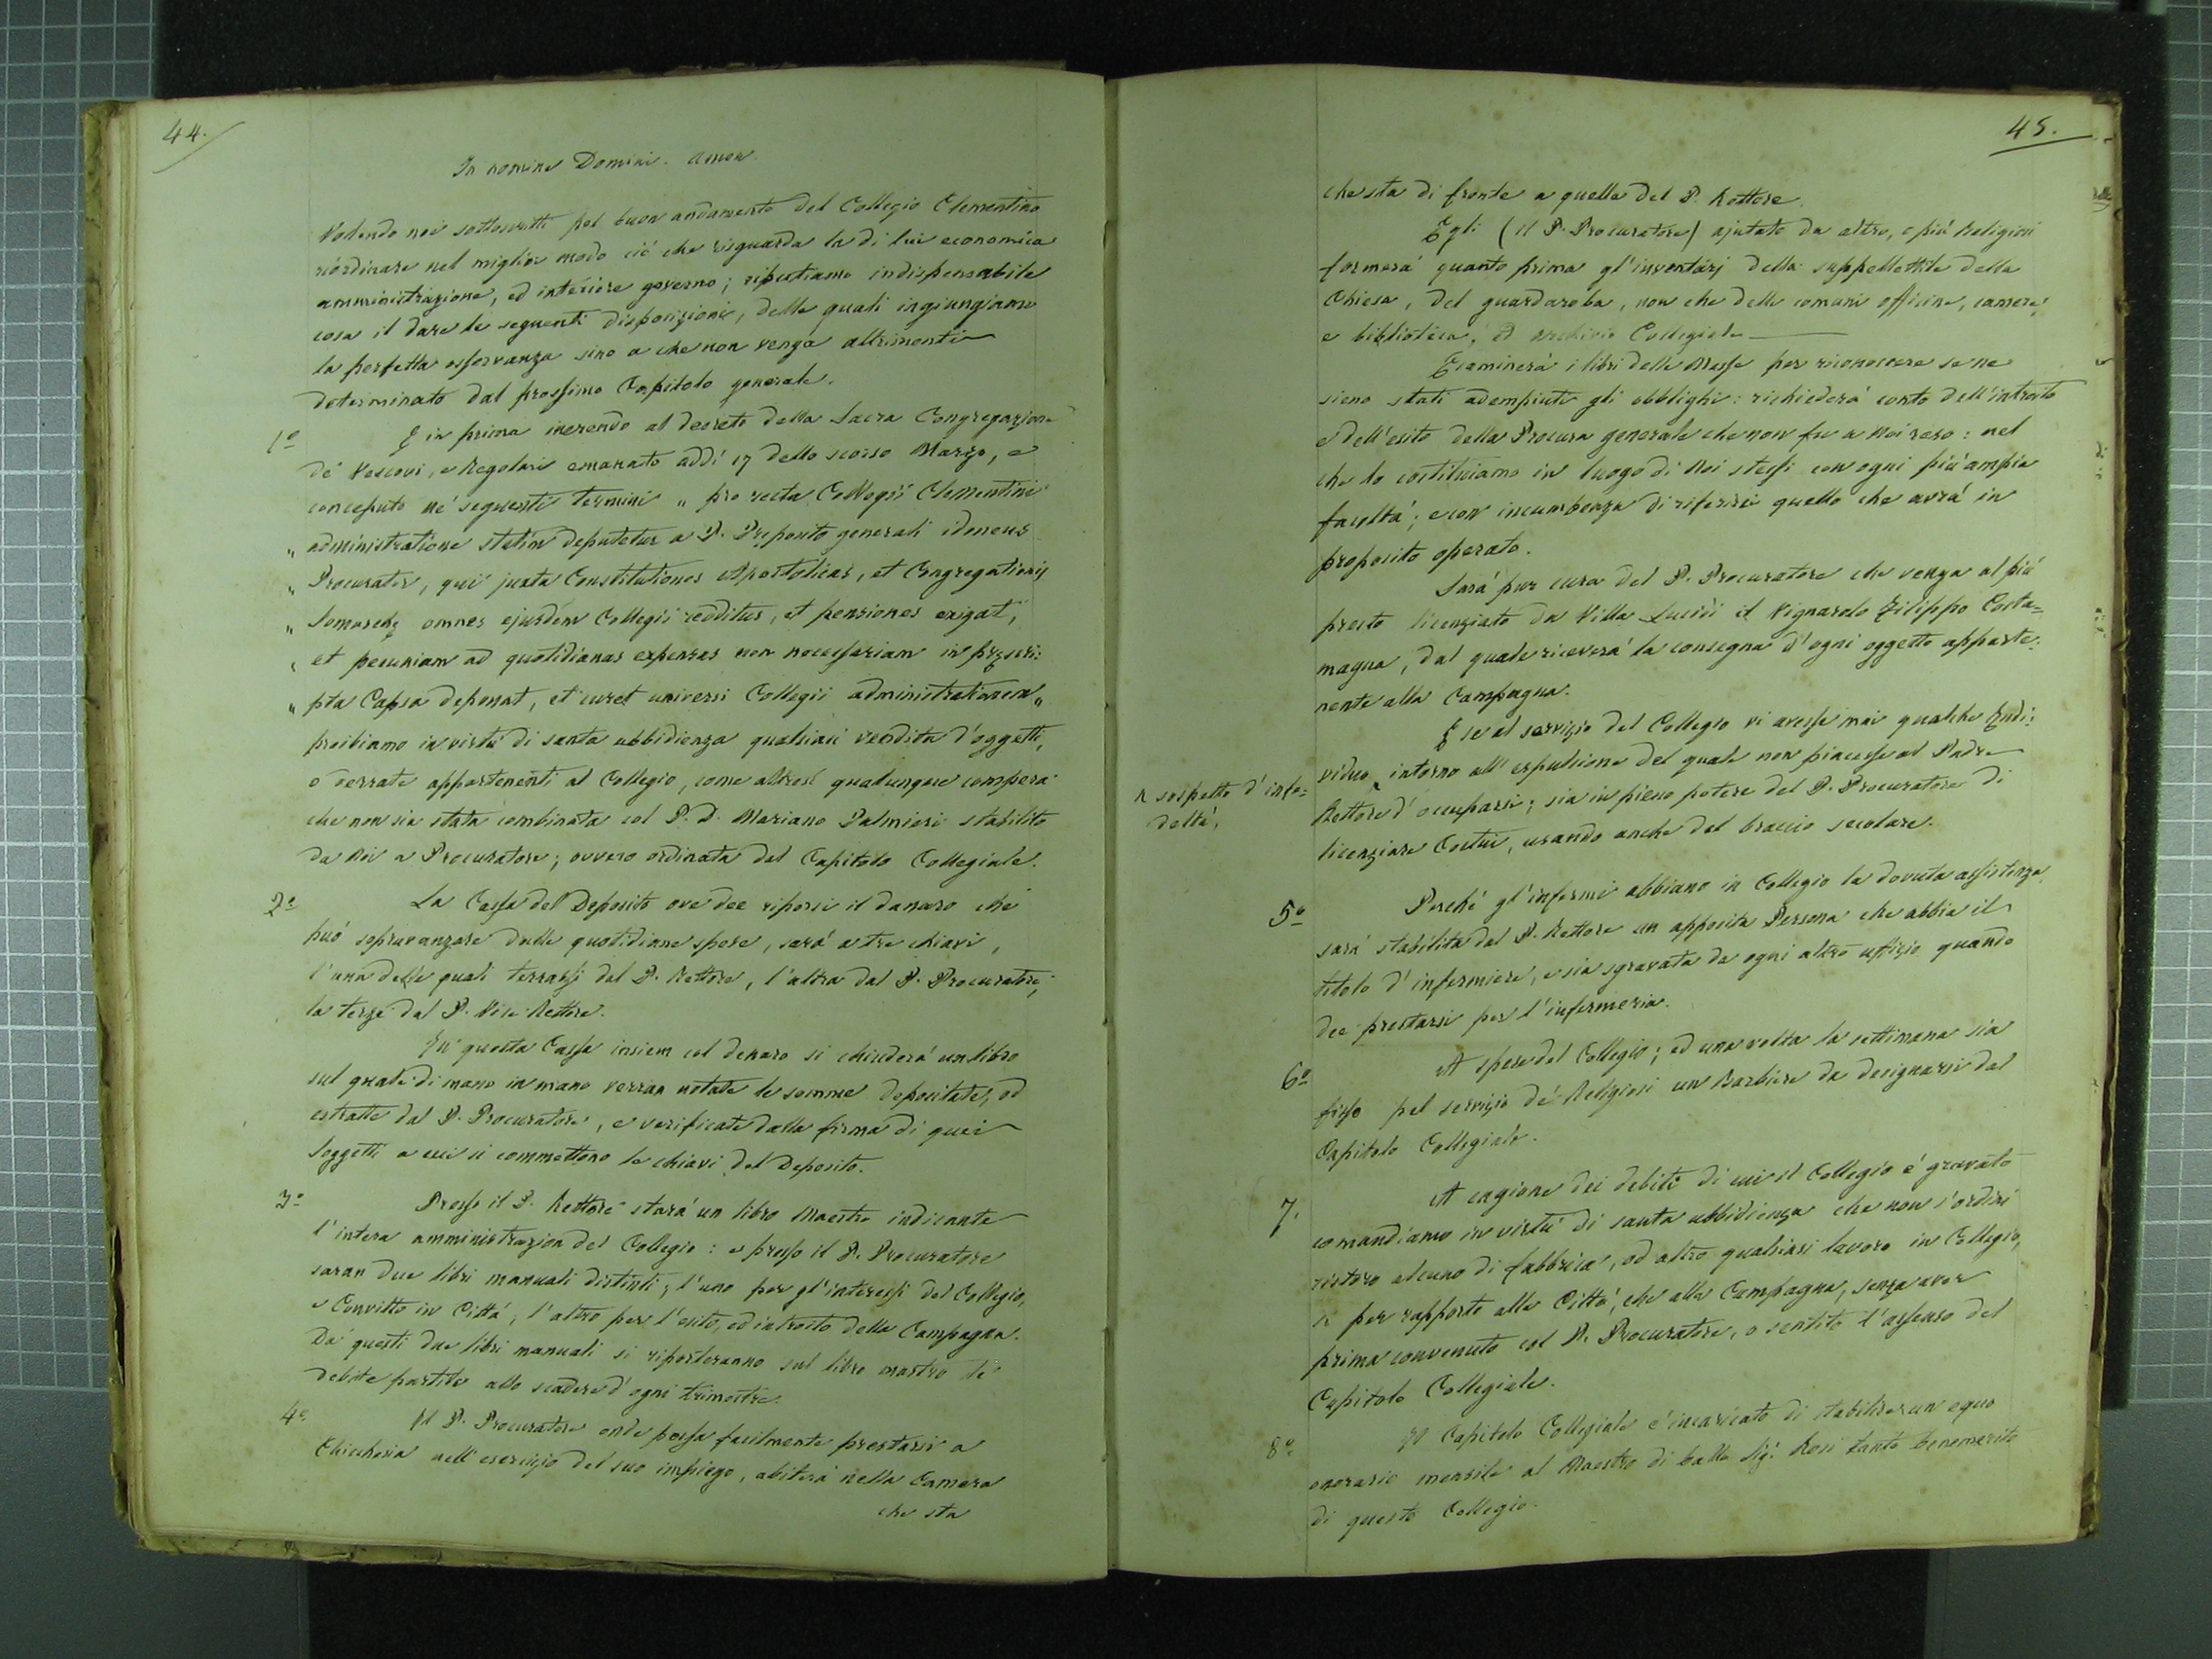 44.
In nomine Domini. Amen.
Volendo noi sottoscritti pel buon andamento del Collegio Clementino
riordinare nel miglior modo ciò che risguarda la di lui economica
amministrazione, ed interiore governo; riputiamo indispensabile
cosa il dare le seguenti disposizioni, delle quali ingiungiamo
la perfetta osservanza sino a che non venga altrimenti
determinato dal prossimo Capitolo generale.
1º E in prima inerendo al decreto della Sacra Congregazione
de' Vescovi, e Regolari emanato addì 17 dello scorso Marzo, e
conceputo ne' seguenti termini „ pro recta Collegii Clementini
„ administratione statim deputetur a P. Preposito generali idoneus
„ Procurator, qui juxta Constitutiones Apostolicas, et Congregationis
„ Somaschę omnes ejusdem Collegii redditus, et pensiones exigat,
„ et pecuniam ad quotidianas expensas non necessariam in pręscri=
„ pta Capsa deponat, et curet universi Collegii administrationem „
proibiamo in virtù di santa ubbidienza qualsiasi vendita d'oggetti,
o derrate appartenenti al Collegio, come altresì qualunque compera
che non sia stata combinata col P. D. Mariano Palmieri stabilito
da Noi a Procuratore; ovvero ordinata dal Capitolo Collegiale.
2º La Cassa del Deposito ove dee riporsi il danaro che
può sopravanzare dalle quotidiane spese, sarà a tre chiavi,
l'una delle quali terrassi dal P. Rettore, l'altra dal P. Procuratore,
la terza dal P. Vice-Rettore.
In questa Cassa insiem col denaro si chiuderà un libro
sul quale di mano in mano verran notate le somme depositate, od
estratte dal P. Procuratore, e verificate dalla firma di quei
Soggetti a cui si commettono le chiavi del Deposito.
3º Presso il P. Rettore starà un libro Maestro indicante
l'intera amministrazion del Collegio: e presso il P. Procuratore
saran due libri manuali distinti; l'uno per gl'interessi del Collegio,
e Convitto in Città, l'altro per l'esito, ed introito della Campagna.
Da questi due libri manuali si riporteranno sul libro mastro le
debite partite allo scadere d'ogni trimestre.
4º Il P. Procuratore onde possa facilmente prestarsi a
Chicchesia nell'esercizio del suo impiego, abiterà nella Camera
che sta
45.
che sta di fronte a quella del P. Rettore.
Egli (il P. Procuratore) ajutato da altro, o più Religiosi
formerà quanto prima gl'inventarj della suppellettile della
Chiesa, del guardaroba, non che delle comuni officine, camere,
e biblioteca, ed archivio Collegiale
Esaminerà i libri delle Messe per riconoscere se ne
sieno stati adempiuti gli obblighi: richiederà conto dell'introito
e dell'esito della Procura generale che non fu a Noi reso: nel
che lo costituiamo in luogo di Noi stessi con ogni più ampia
facoltà; e con incumbenza di riferirci quello che avrà in
proposito operato.
Sarà pur cura del P. Procuratore che venga al più
presto licenziato da Villa Lucidi il Vignarolo Filippo Costa=
magna, dal quale riceverà la consegna d'ogni oggetto apparte=
nente alla Campagna.
E se al servizio del Collegio vi avesse mai qualche Indi=
viduo ^ intorno all'espulsione del quale non piacesse al Padre
^ sospetto d'infe=
deltà,
Rettore d'occuparsi; sia in pieno potere del P. Procuratore di
licenziare Costui, usando anche del braccio secolare.
5º Perchè gl'infermi abbiano in Collegio la dovuta assistenza
sarà stabilita dal P. Rettore un apposita Persona che abbia il
titolo d'infermiere, e sia sgravata da ogni altro uffizio quando
dee prestarsi per l'infermeria.
6º A spese del Collegio; ed una volta la settimana sia
fisso pel servizio de' Religiosi un Barbiere da designarsi dal
Capitolo Collegiale.
7. A cagione dei debiti di cui il Collegio è gravato
comandiamo in virtù di santa ubbidienza che non s'ordini
ristoro alcuno di fabbrica, od altro qualsiasi lavoro in Collegio,
sì per rapporto alla Città, che alla Campagna, senza aver
prima convenuto col P. Procuratore, o sentito l'assenso del
Capitolo Collegiale.
8º Il Capitolo Collegiale è incaricato di stabilire un equo
onorario mensile al Maestro di ballo Sig. Rosi tanto benemerito
di questo Collegio.